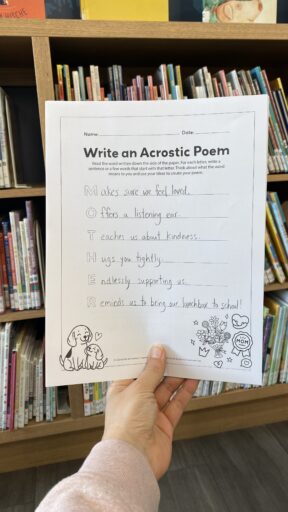 Name
Date
Write an Acrostic Poem
Read the word written down the side of the paper. For each letter, write a
sentence or a few words that start with that letter. Think about what the word
means to you and use your ideas to create your poem.
Makes sure we feel loved
Offers a listening ear
Teaches us about kindness
Hugs you tightly
Endlessly supporting us
Reminds us to bring our lunchbox to school!
MOM